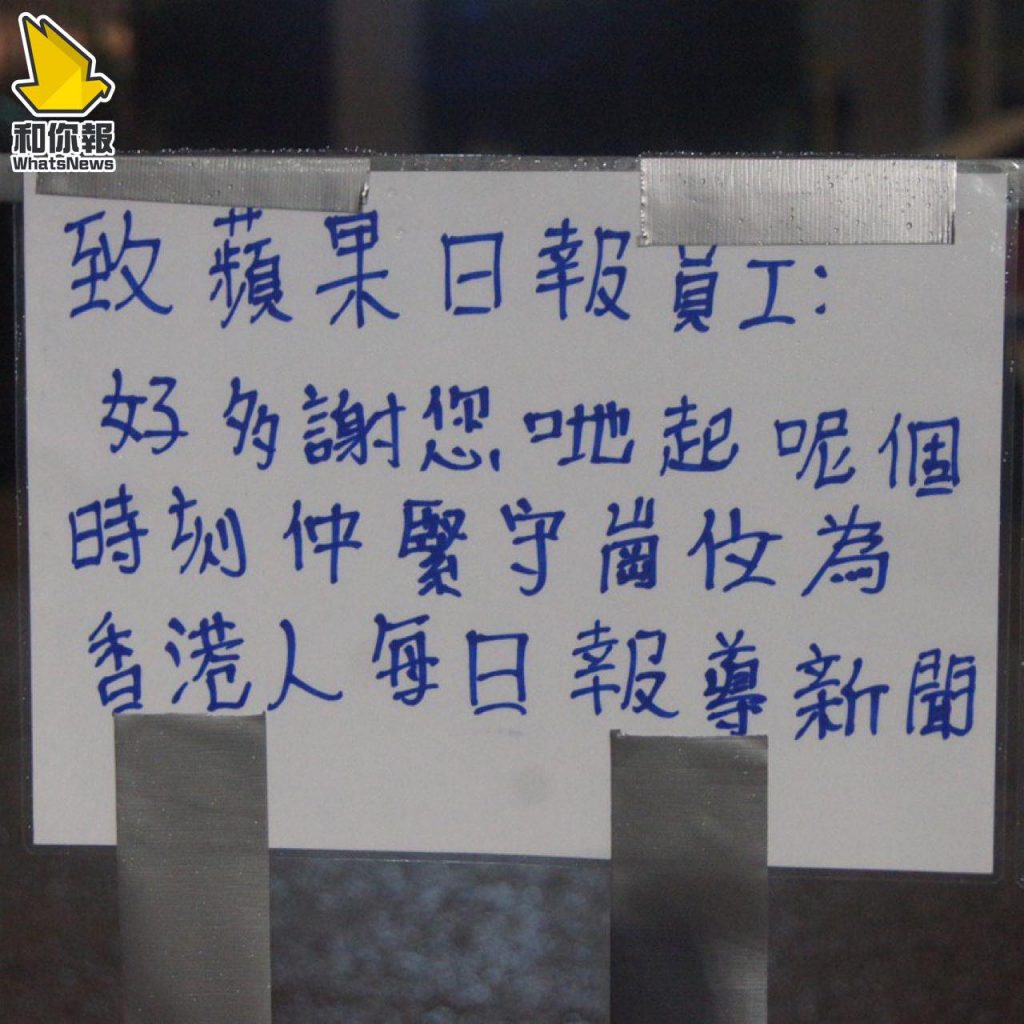 和你報
WhatsNews
致蘋果日報員工:
好多謝您哋起呢個
時刻仲緊守崗位為
香港人每日報導新聞